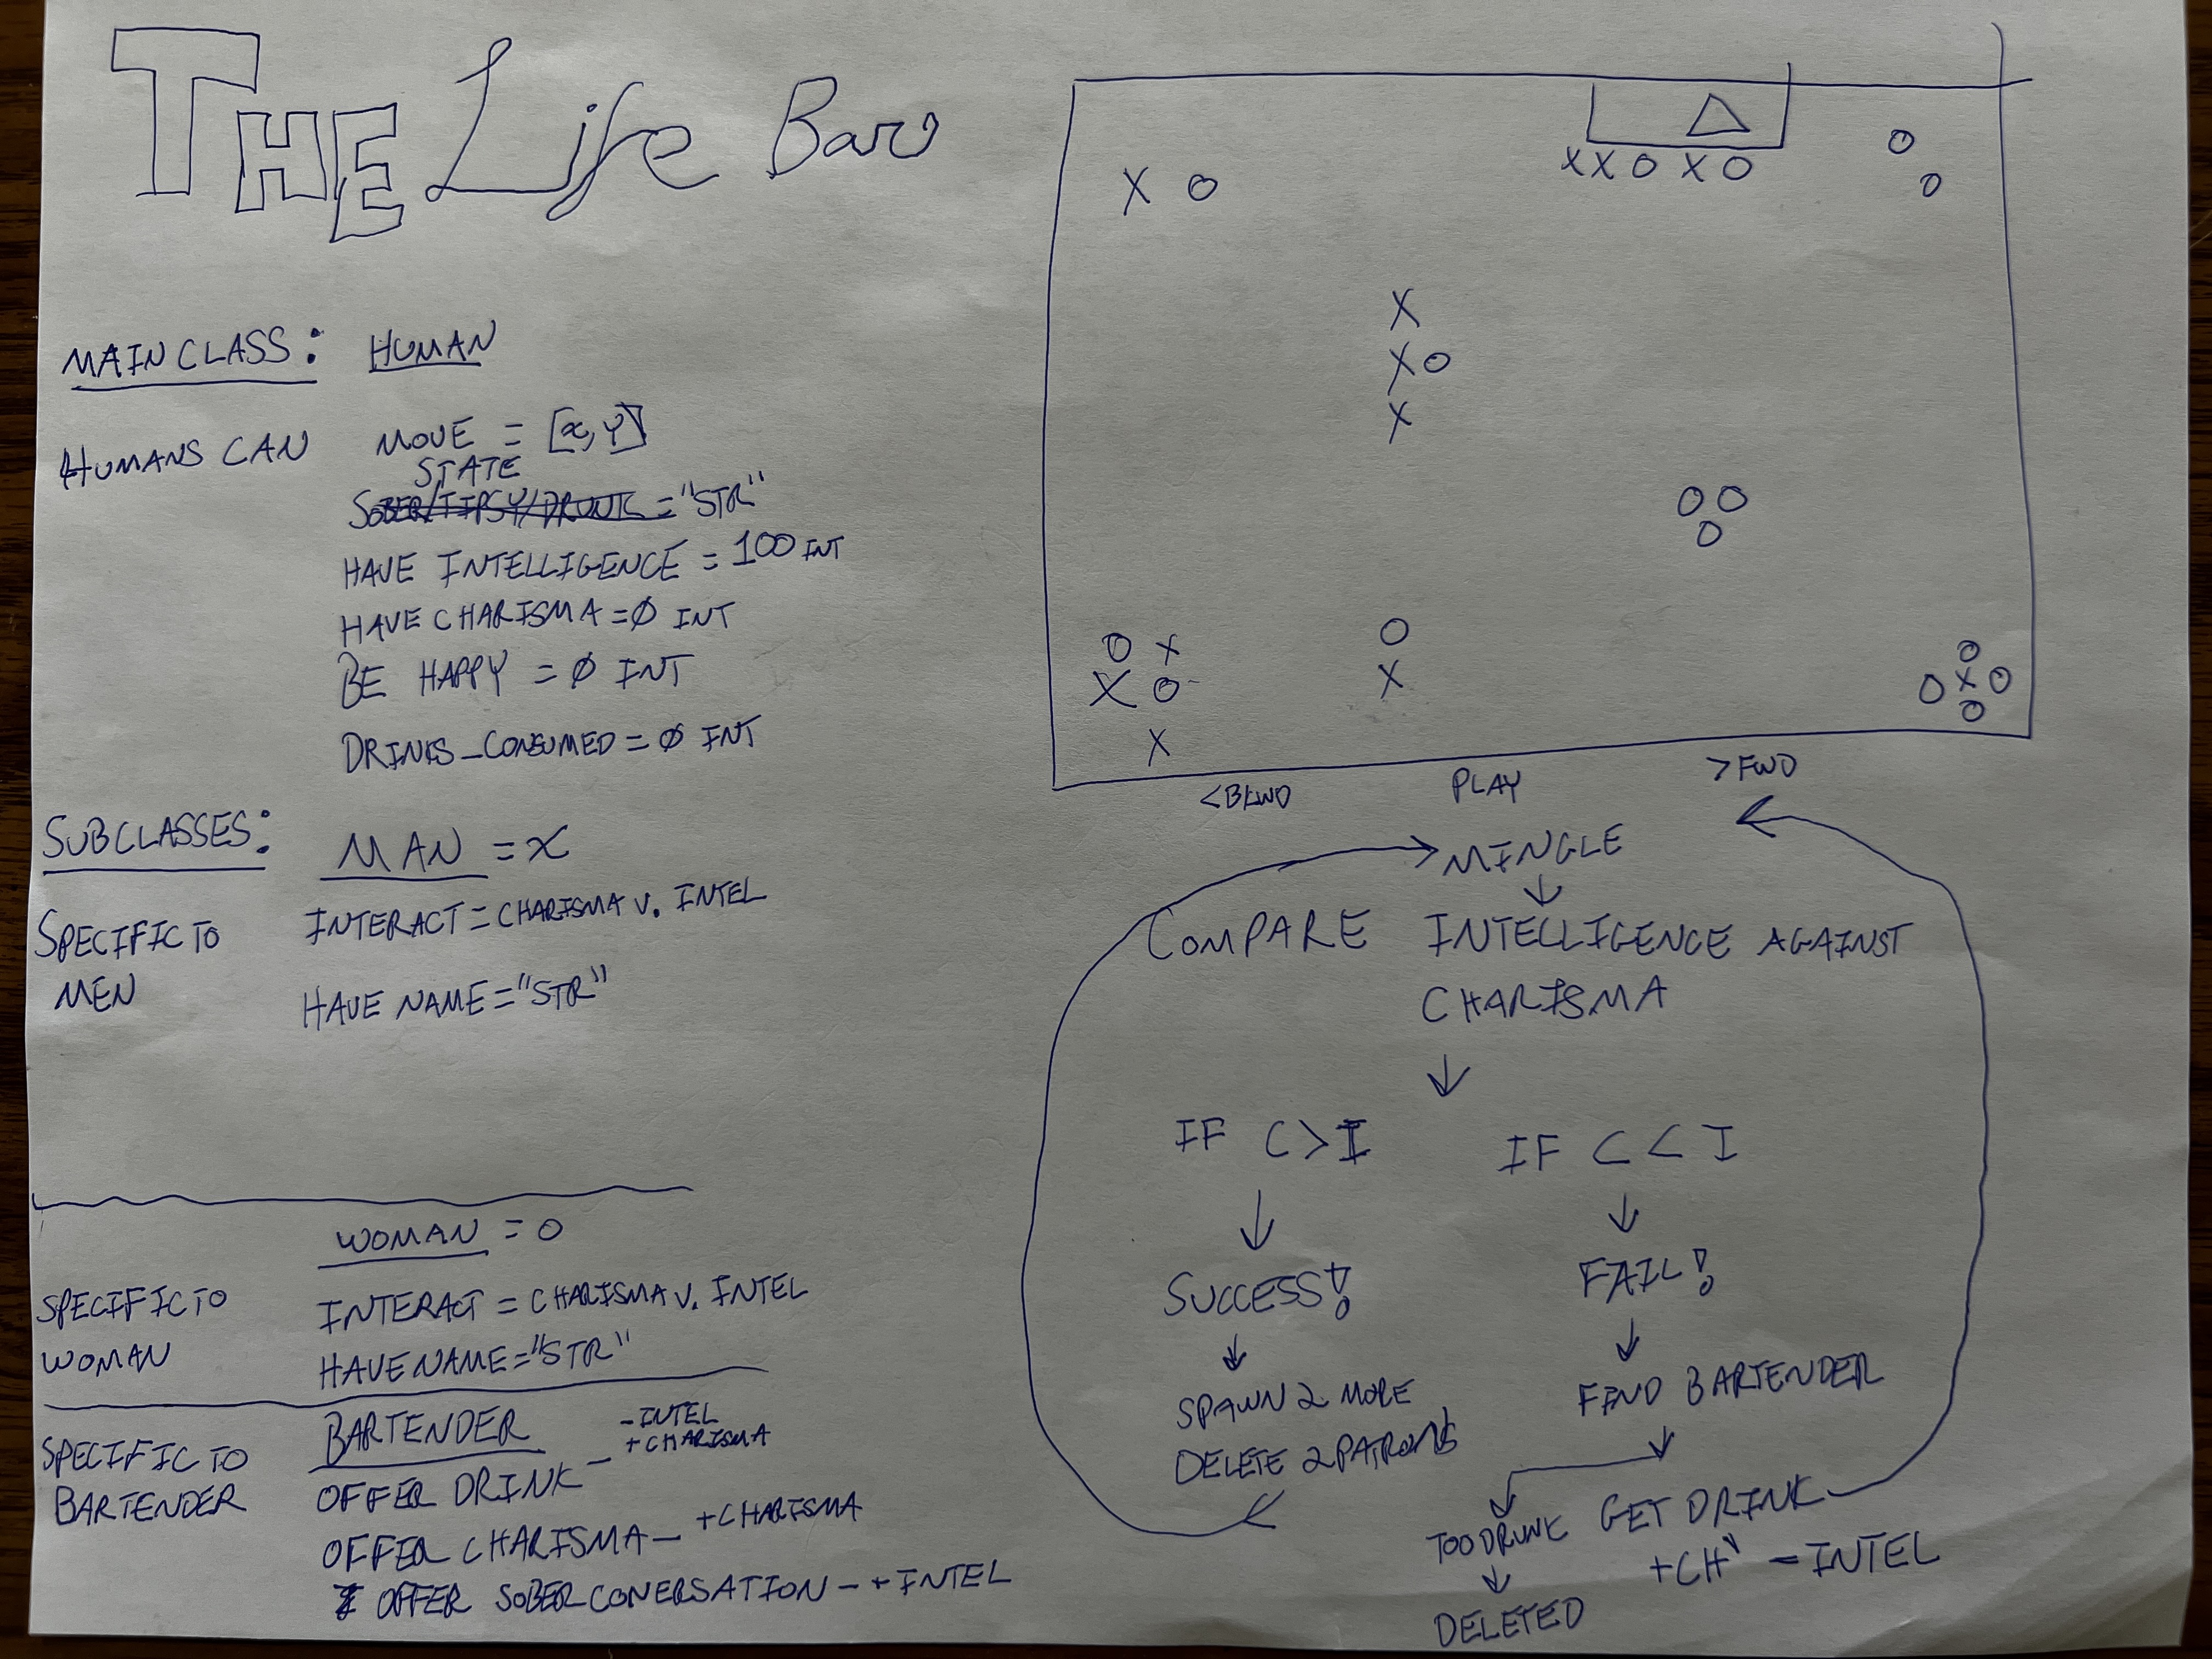 THE Life Bar
MAIN CLASS: HUMAN
HUMANS CAN MOVE = [x,y]
STATE
SOBER/TIPSY/DRUNK = "STR"
HAVE INTELLIGENCE = 100 INT
HAVE CHARISMA = Ø INT
BE HAPPY = Ø INT
DRINKS_CONSUMED = Ø INT
SUBCLASSES: MAN = X
SPECIFIC TO MEN
INTERACT = CHARISMA V. INTEL
HAVE NAME = "STR"
WOMAN = O
SPECIFIC TO WOMAN
INTERACT = CHARISMA V. INTEL
HAVE NAME = "STR"
SPECIFIC TO BARTENDER
BARTENDER
OFFER DRINK – -INTEL
+CHARISMA
OFFER CHARISMA – +CHARISMA
OFFER SOBER CONERSATION – +INTEL
X X O X O
O
O
X O
X
X O
X
O O
O
O X
X O
X
O
X
O
O X O
O
<BKWD PLAY >FWD
MINGLE
COMPARE INTELLIGENCE AGAINST
CHARISMA
IF C > I
SUCCESS!
SPAWN 2 MORE
DELETE 2 PATRONS
IF C < I
FAIL!
FIND BARTENDER
TOO DRUNK
DELETED
GET DRINK
+CH -INTEL